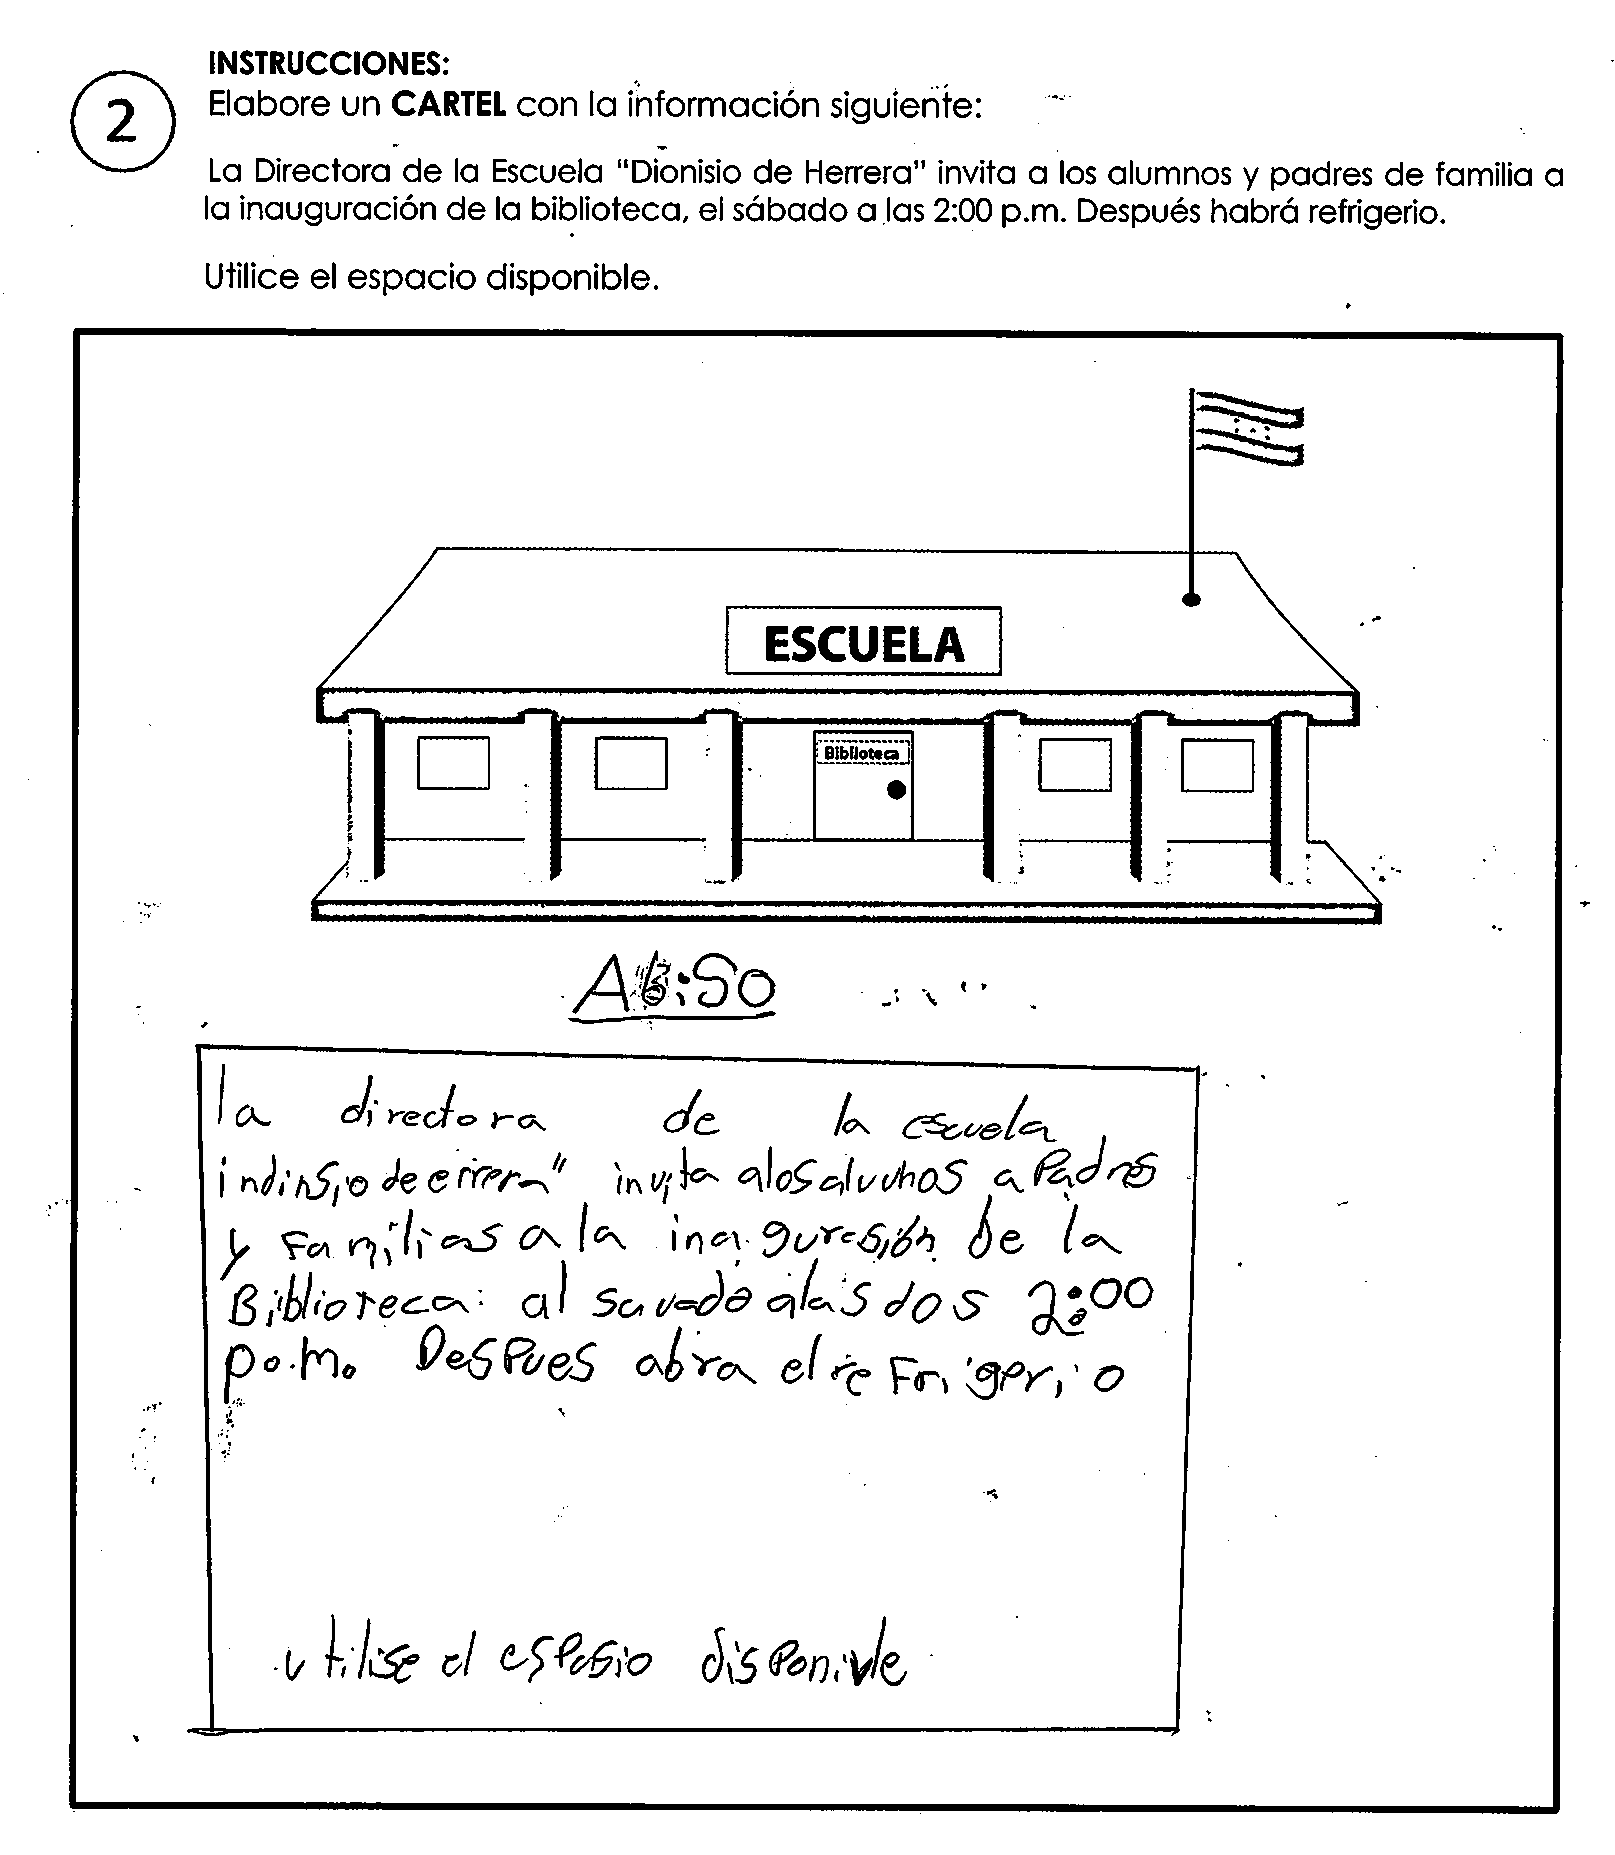 INSTRUCCIONES:
2
Elabore un CARTEL con la información siguiente:
La Directora de la Escuela "Dionisio de Herrera" invita a los alumnos y padres de familia a
la inauguración de la biblioteca, el sábado a las 2:00 p.m. Después habrá refrigerio.
Utilice el espacio disponible.
ESCUELA
Biblioteca
Abiso
la directora de la escuela
indinsio de errera" invita alos aluunos a Padres
y Familias a la inaguresión de la
Biblioteca: al savado alas dos 2:00
p.m. Despues abra el reFrigerio
utilise el espasio disponivle